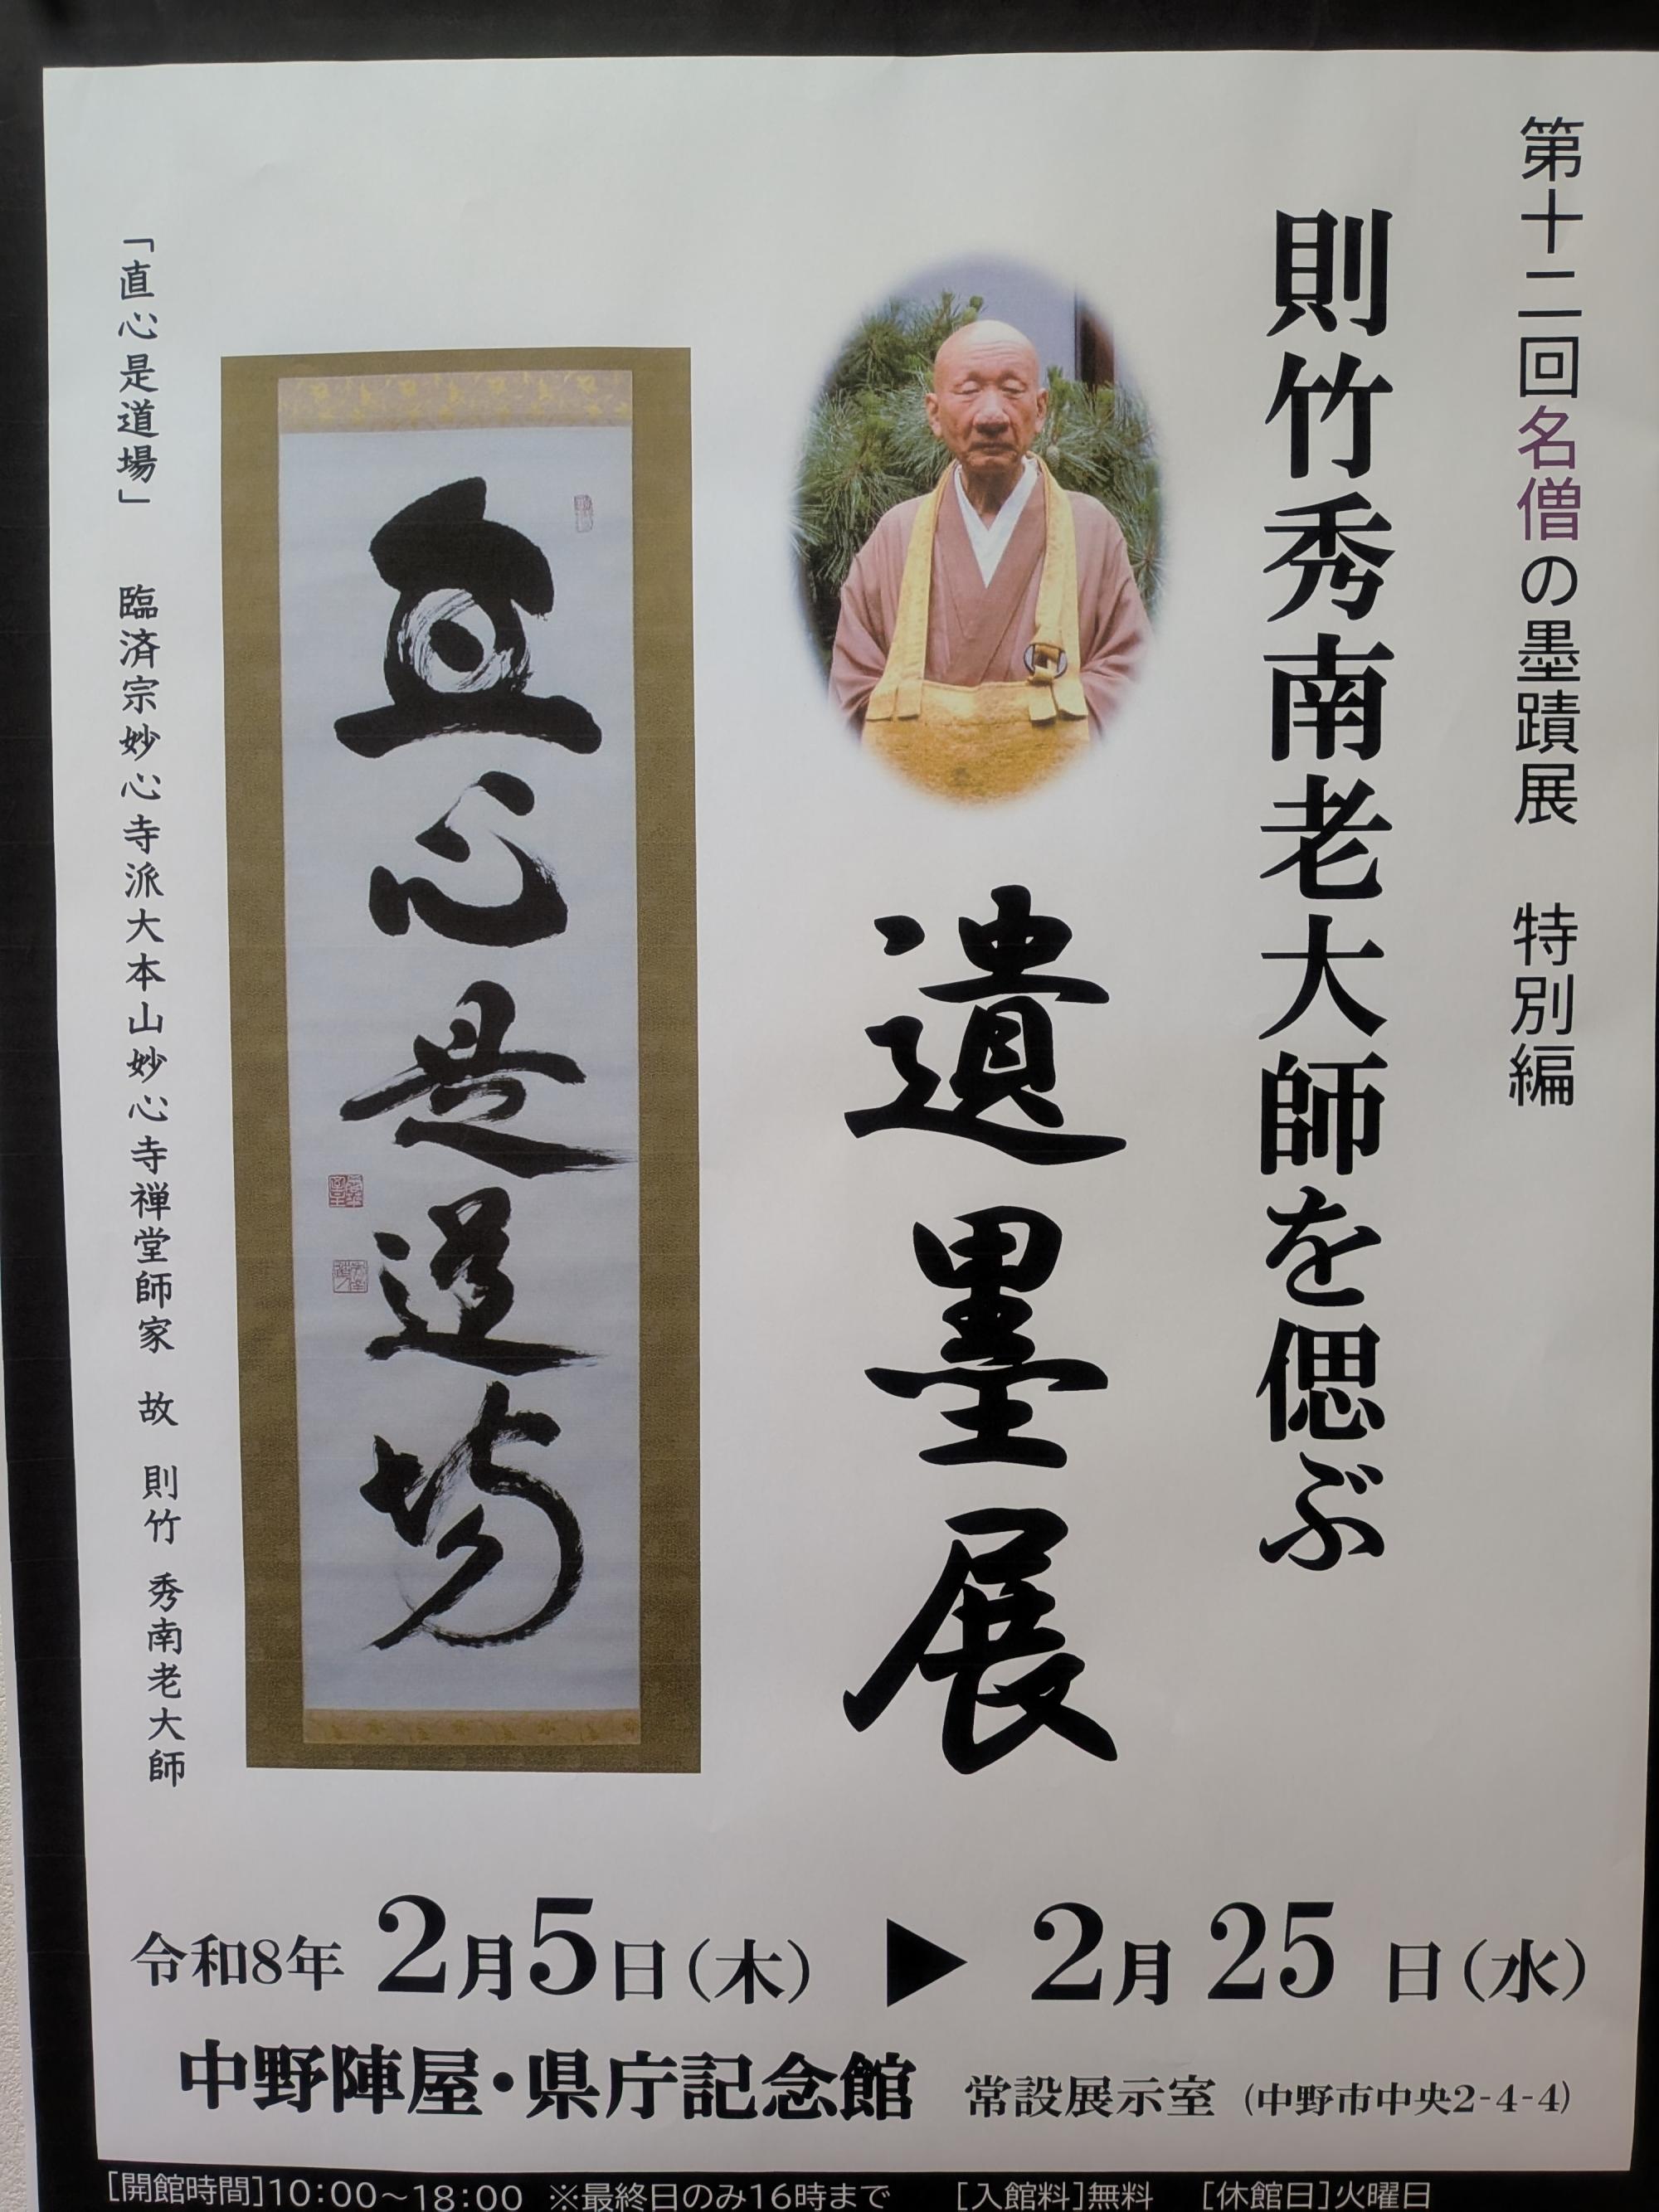 第十二回名僧の墨蹟展　特別編
則竹秀南老大師を偲ぶ
遺墨展
直心是道場
「直心是道場」　臨済宗妙心寺派大本山妙心寺禅堂師家　故　則竹　秀南老大師
令和8年 2月5日(木) ▶ 2月25日(水)
中野陣屋・県庁記念館 常設展示室 (中野市中央2-4-4)
[開館時間]10:00～18:00 ※最終日のみ16時まで [入館料]無料 [休館日]火曜日